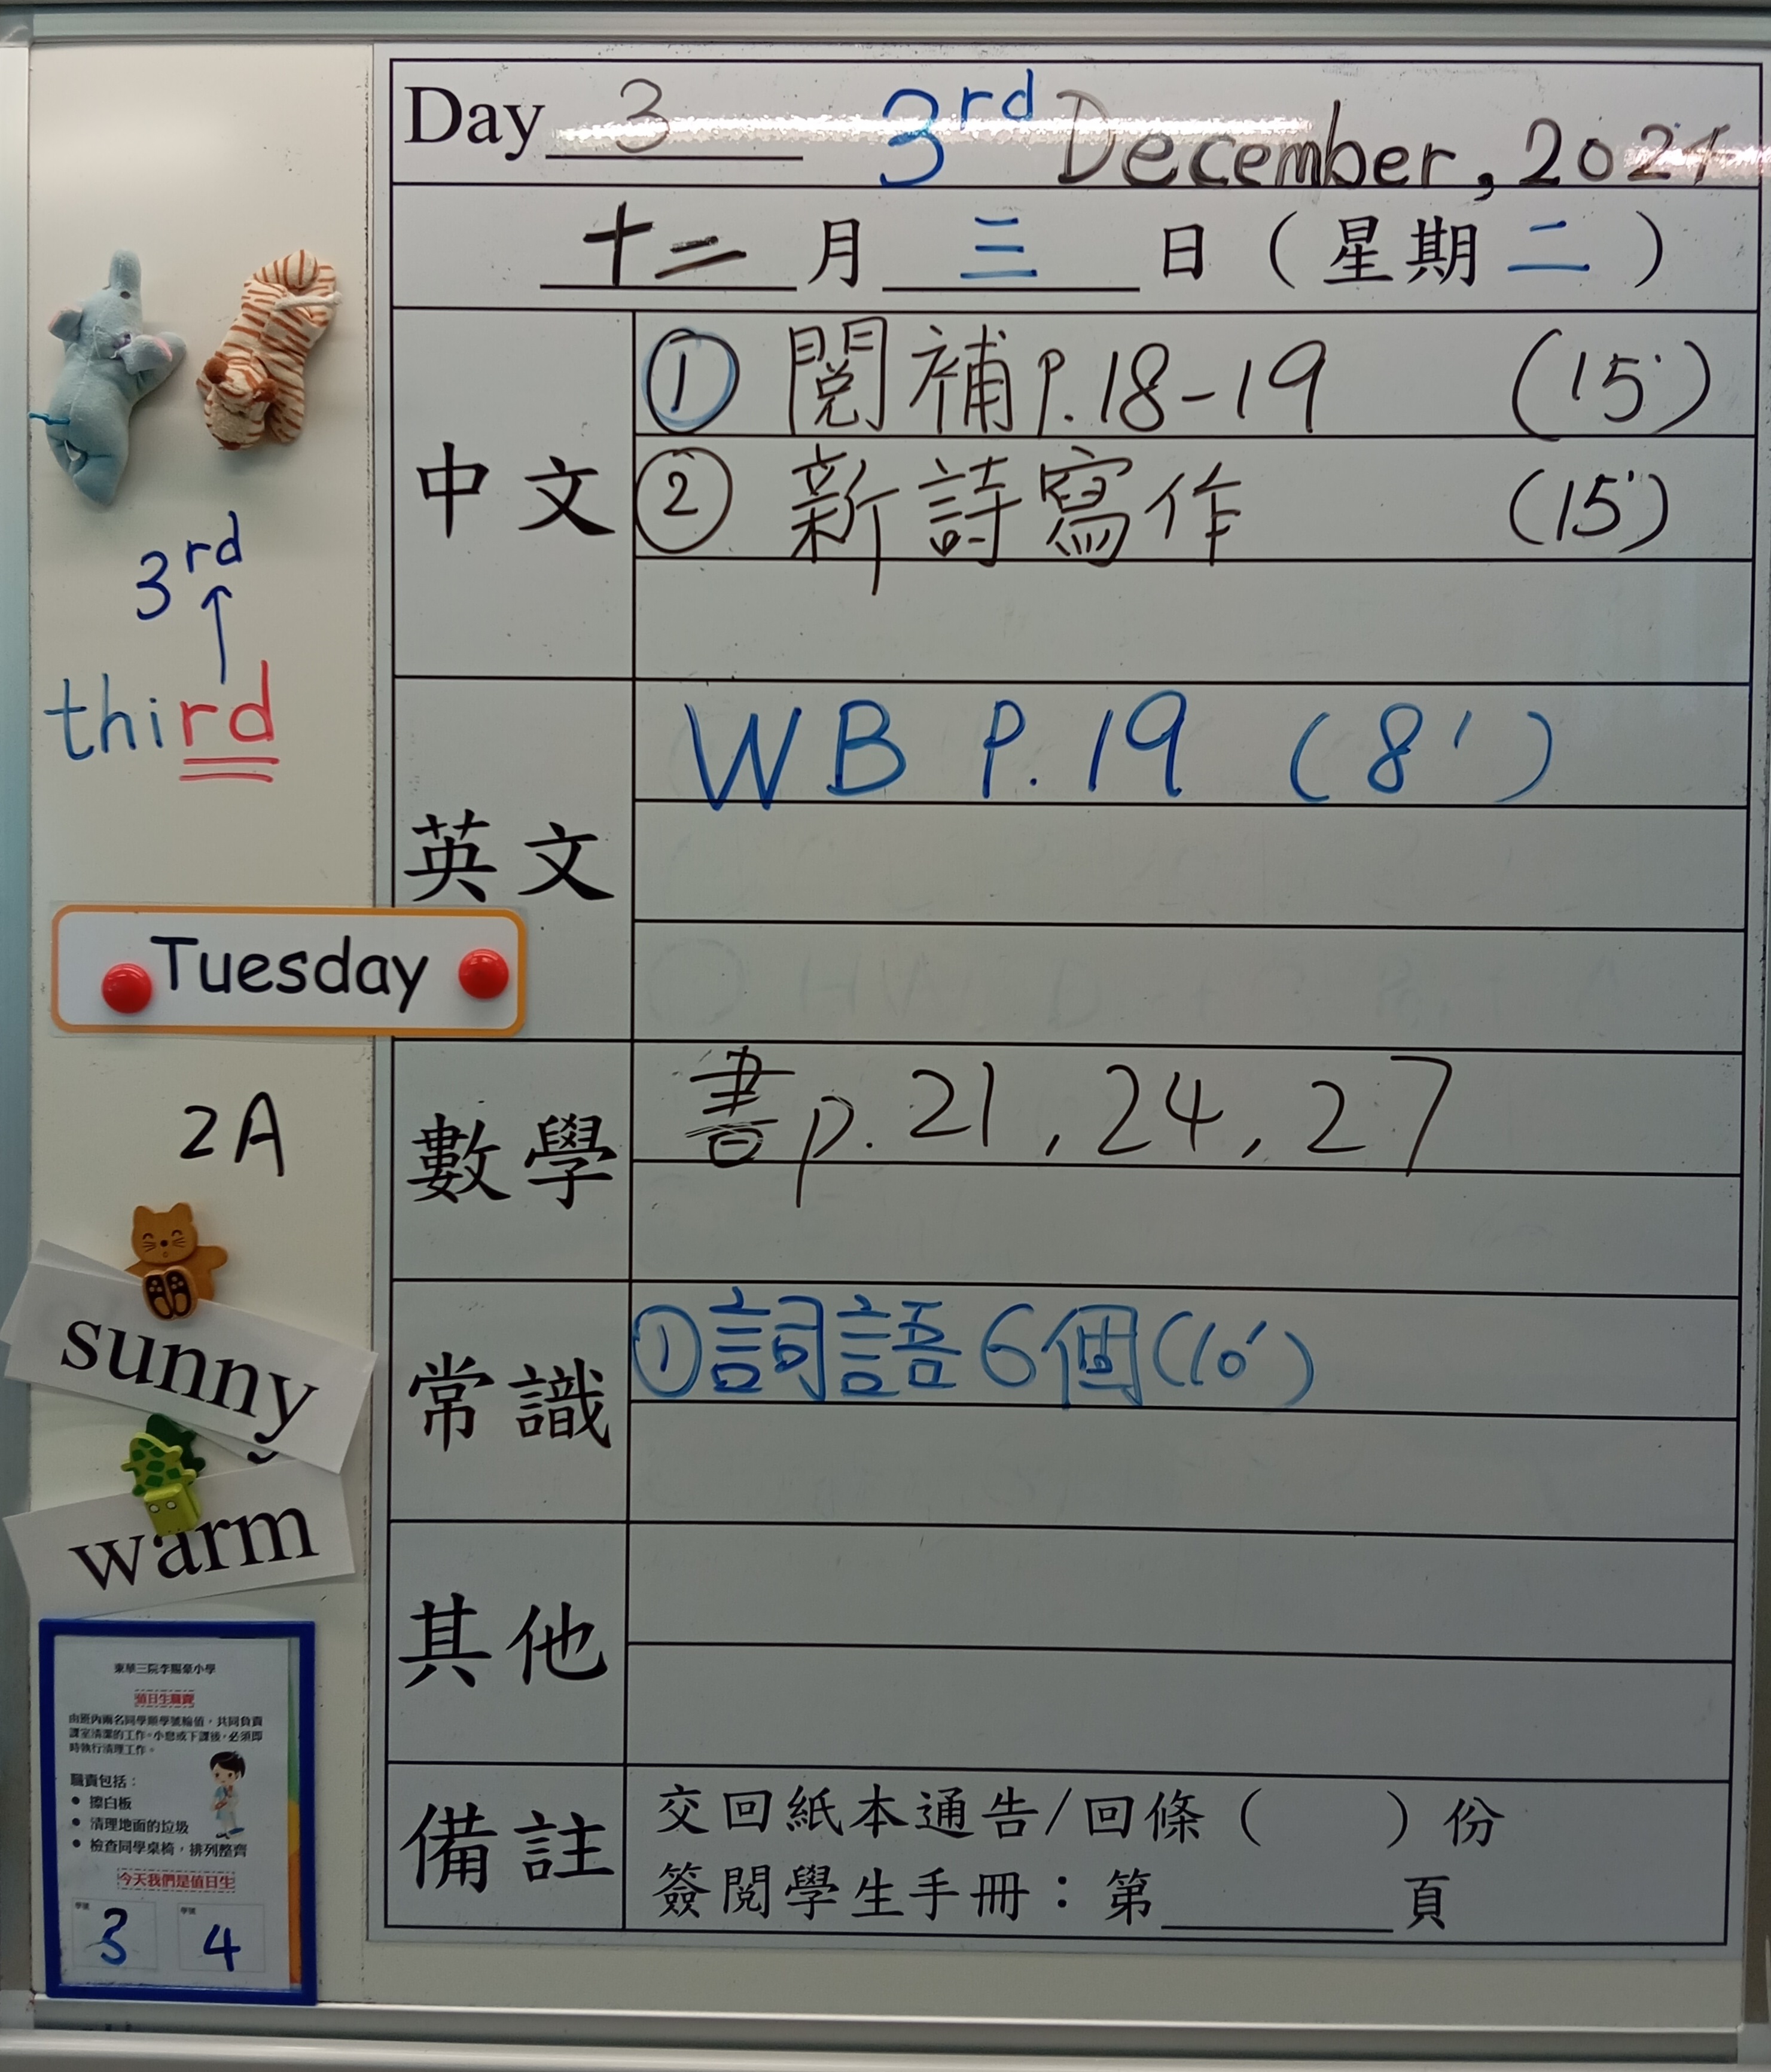 Day 3 3rd December, 2024
十二 月 三 日 ( 星期 二 )
中文
① 閱補 p.18-19 (15')
② 新詩寫作 (15')
英文
WB P.19 (8')
數學
書 p. 21, 24, 27
常識
① 詞語 6個 (10')
其他
備註
交回紙本通告/回條 ( ) 份
簽閱學生手冊：第______頁
3rd
↑
third
Tuesday
2A
sunny
warm
東華三院李賜豪小學
值日生職責
由班內兩名同學順學號輪值，共同負責
課室清潔的工作。小息或下課後，必須即
時執行清理工作。
職責包括：
• 擦白板
• 清理地面的垃圾
• 檢查同學桌椅，排列整齊
今天我們是值日生
學號 學號
3 4